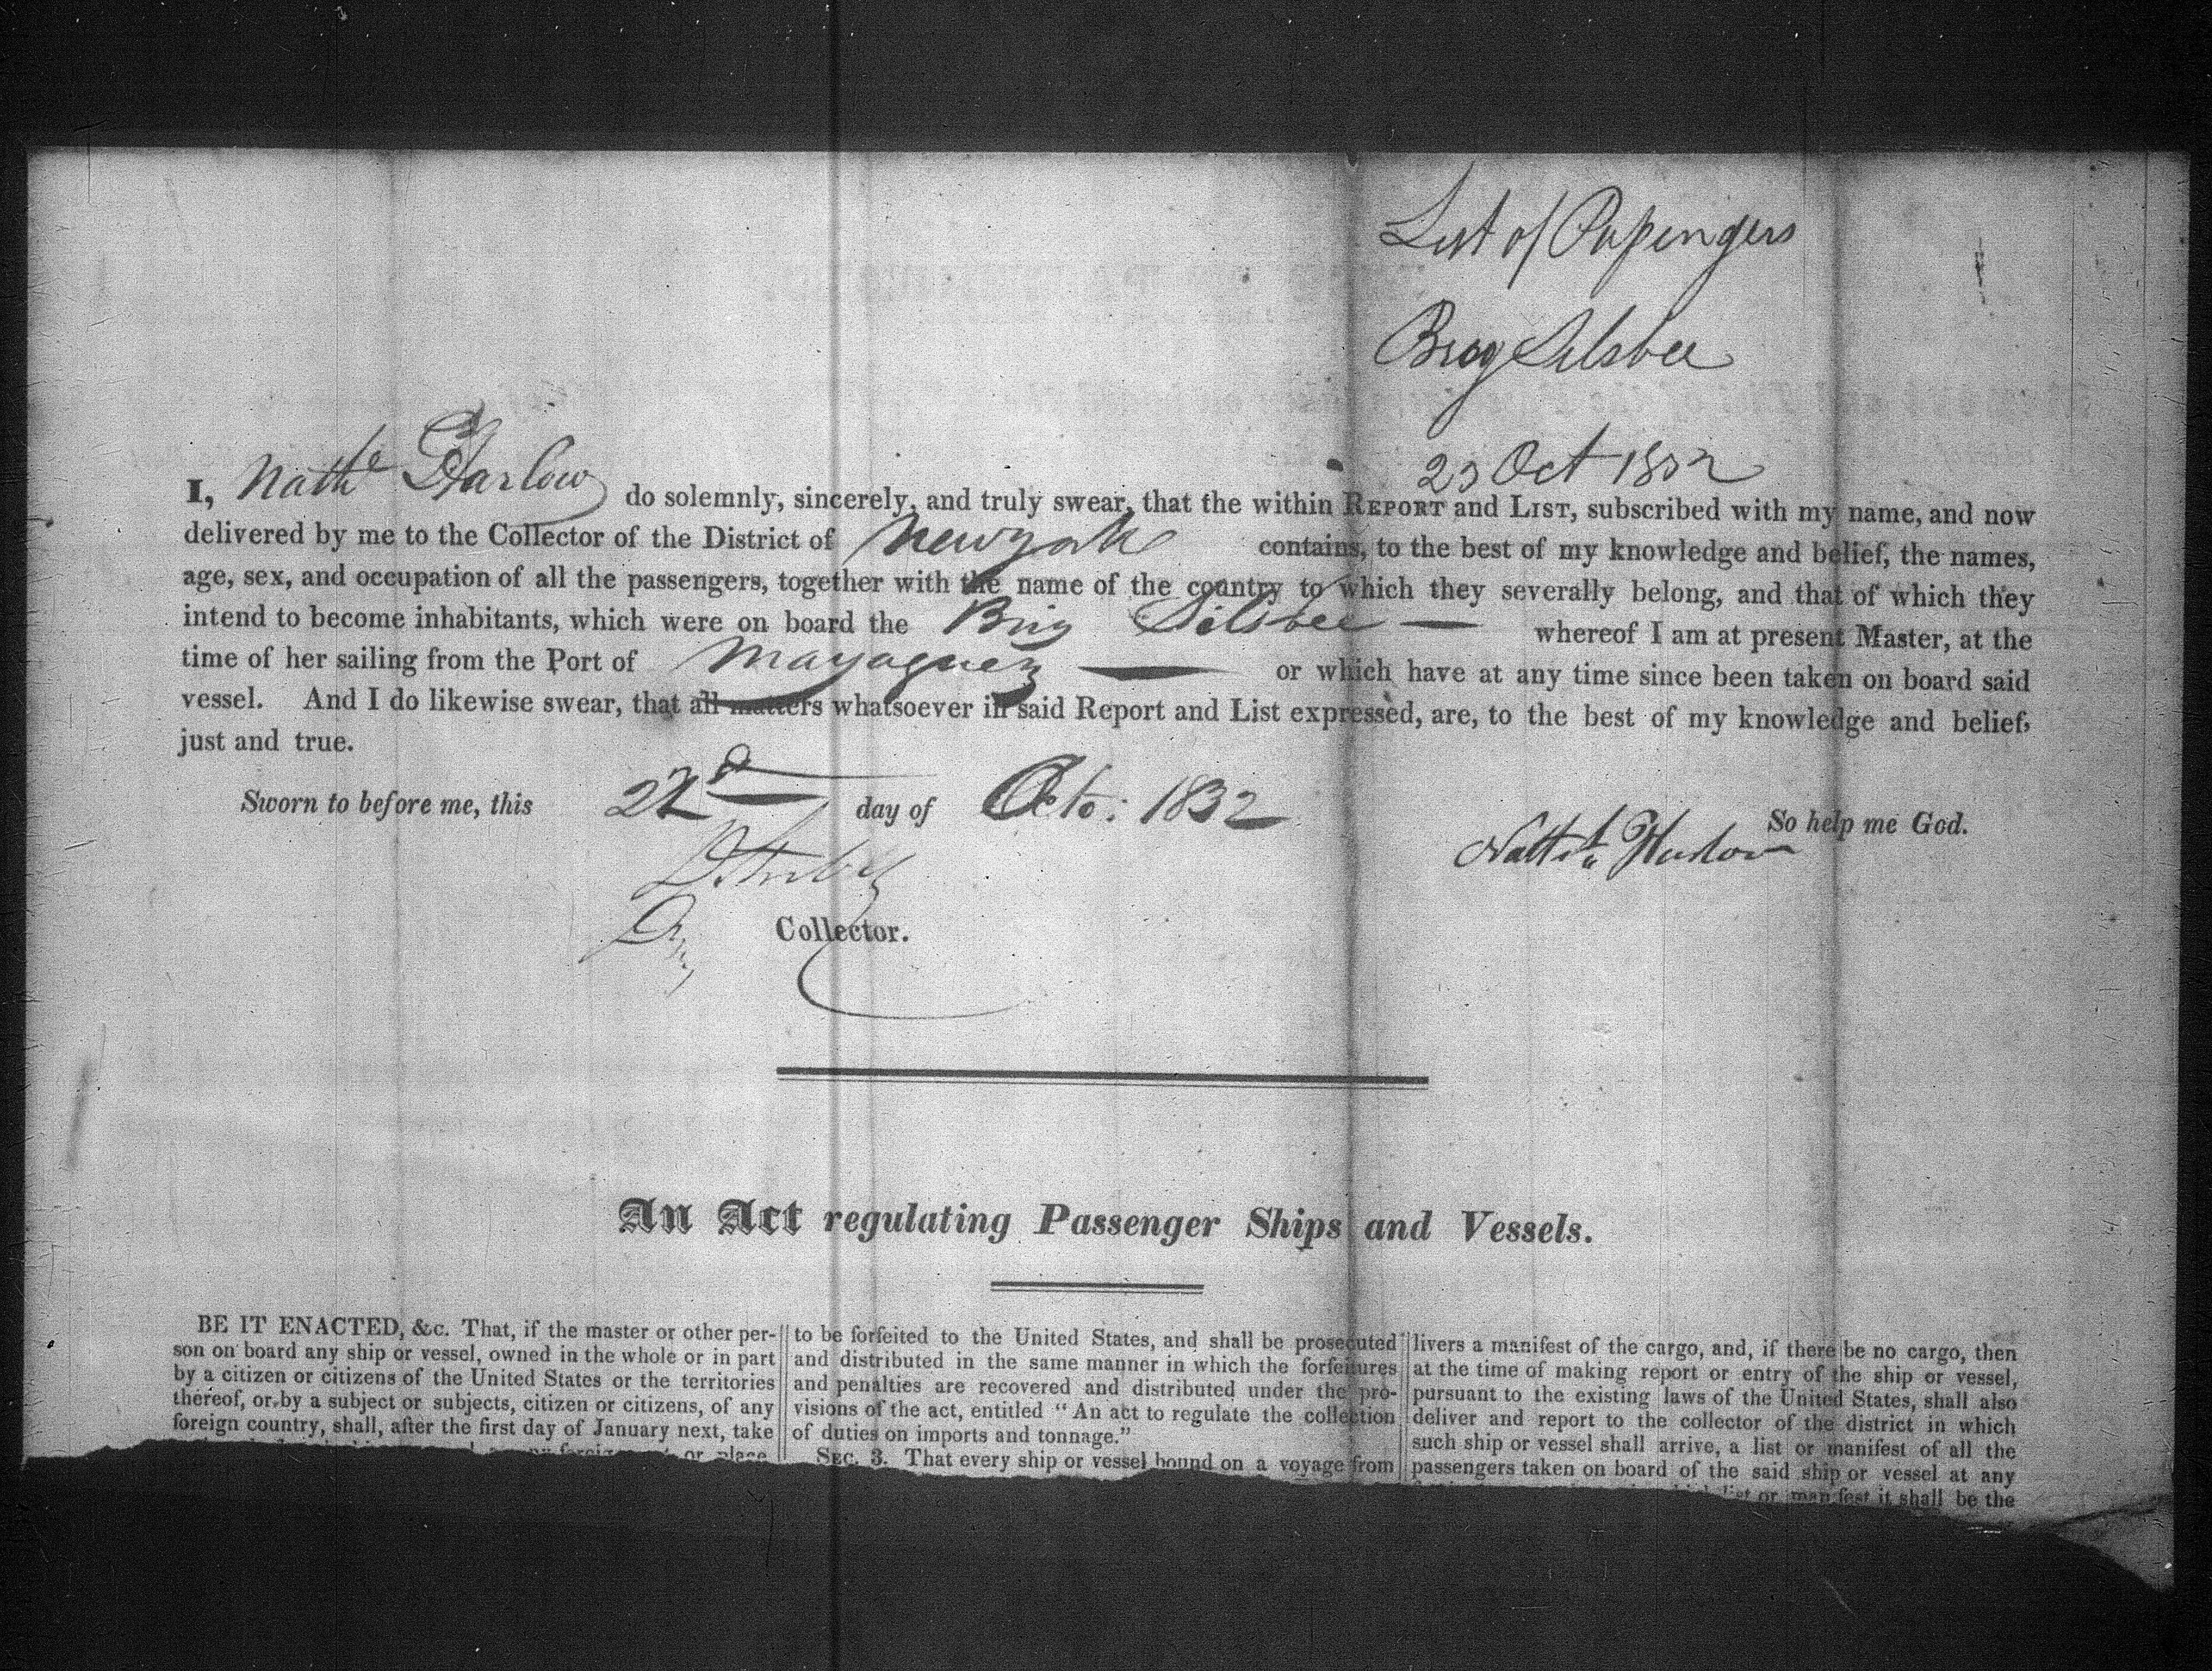 List of Passengers
Brig Silsbee
23 Oct 1832
I, Nathl Harlow do solemnly, sincerely, and truly swear, that the within REPORT and LIST, subscribed with my name, and now
delivered by me to the Collector of the District of Newyork contains, to the best of my knowledge and belief, the names,
age, sex, and occupation of all the passengers, together with the name of the country to which they severally belong, and that of which they
intend to become inhabitants, which were on board the Brig Silsbee — whereof I am at present Master, at the
time of her sailing from the Port of Mayaguez — or which have at any time since been taken on board said
vessel. And I do likewise swear, that all matters whatsoever in said Report and List expressed, are, to the best of my knowledge and belief,
just and true.
Sworn to before me, this 22d day of Octo: 1832
So help me God.
Harlow
Collector.
An Act regulating Passenger Ships and Vessels.
BE IT ENACTED, &c. That, if the master or other per-
son on board any ship or vessel, owned in the whole or in part
by a citizen or citizens of the United States or the territories
thereof, or by a subject or subjects, citizen or citizens, of any
foreign country, shall, after the first day of January next, take
or place
to be forfeited to the United States, and shall be prosecuted
and distributed in the same manner in which the forfeitures
and penalties are recovered and distributed under the pro-
visions of the act, entitled "An act to regulate the collection
of duties on imports and tonnage."
SEC. 3. That every ship or vessel bound on a voyage from
livers a manifest of the cargo, and, if there be no cargo, then
at the time of making report or entry of the ship or vessel,
pursuant to the existing laws of the United States, shall also
deliver and report to the collector of the district in which
such ship or vessel shall arrive, a list or manifest of all the
passengers taken on board of the said ship or vessel at any
list or manifest it shall be the